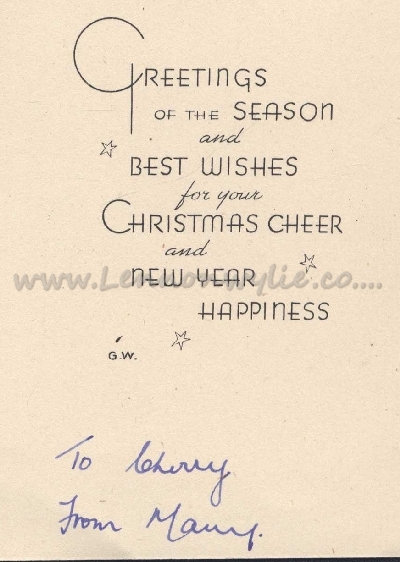 GREETINGS
OF THE SEASON
and
BEST WISHES
for your
CHRISTMAS CHEER
and
NEW YEAR
HAPPINESS
G.W.
To Cherry
From